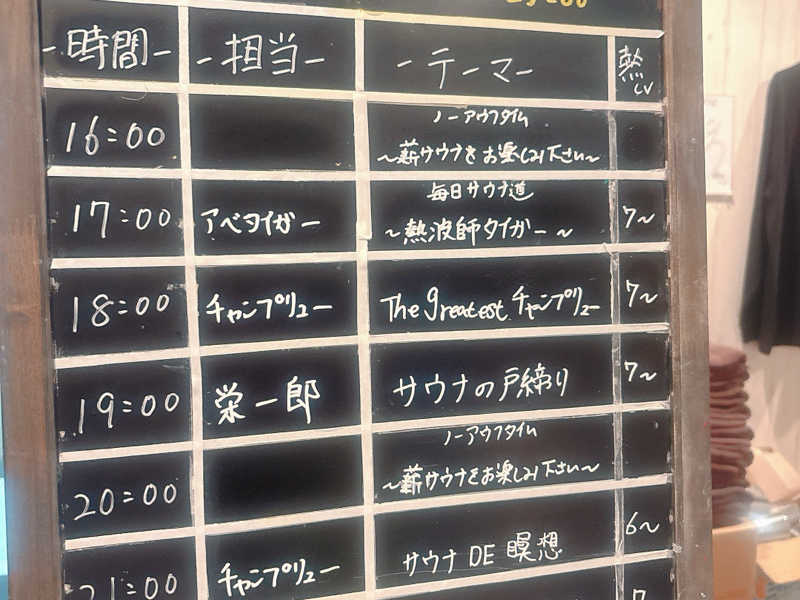 -時間- -担当- -テーマ- 熱LV
16:00 ノーアウフタイム
~薪サウナをお楽しみ下さい~
17:00 アベタイガー 毎日サウナ道 7~
~熱波師タイガー~
18:00 チャンプリュー The greatest チャンプリュー 7~
19:00 栄一郎 サウナの戸締り 7~
20:00 ノーアウフタイム
~薪サウナをお楽しみ下さい~
21:00 チャンプリュー サウナDE瞑想 6~